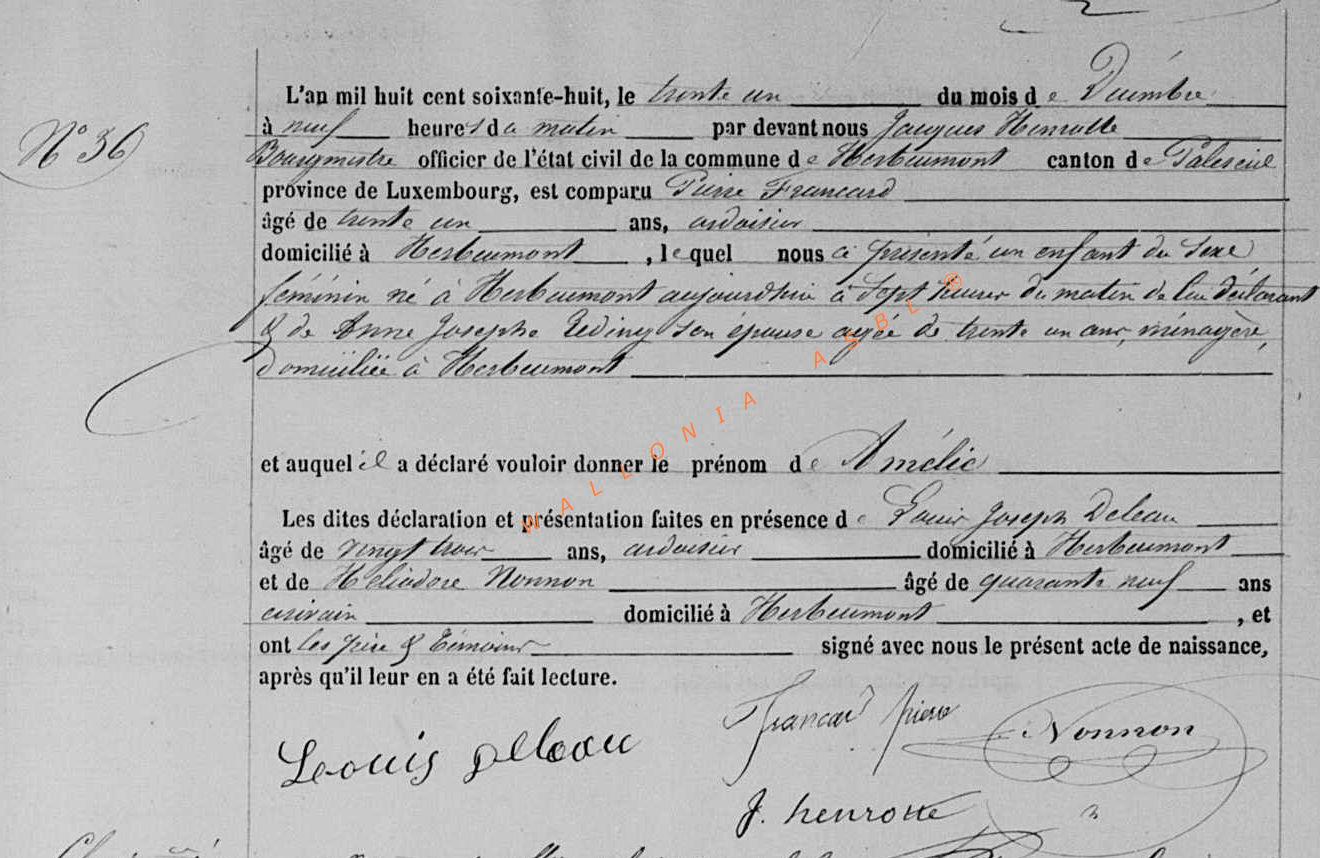 L'an mil huit cent soixante-huit, le trente un du mois de Décembre
N° 36
à neuf heures da matin par devant nous Jacques Henrotte
Bourgmestre officier de l'état civil de la commune de Herbeumont canton de Paliseul
province de Luxembourg, est comparu Pierre Francard
âgé de trente un ans, ardoisier
domicilié à Herbeumont, lequel nous a présenté un enfant du sexe
féminin né à Herbeumont aujourdhui à Sept heures du matin de lui déclarant
& de Anne Josephe Reding son épouse agée de trente un ans, ménagère,
domiciliée à Herbeumont
et auquel il a déclaré vouloir donner le prénom de Amélie
Les dites déclaration et présentation faites en présence de Louis Joseph Deleau
âgé de vingt trois ans, ardoisier domicilié à Herbeumont
et de Héliodore Nonnon âgé de quarante neuf ans
écrivain domicilié à Herbeumont, et
ont les père & témoins signé avec nous le présent acte de naissance,
après qu'il leur en a été fait lecture.
Francard pierre
Nonnon
Leouis delleau
J. henrotte
WALLONIA ASBL ®